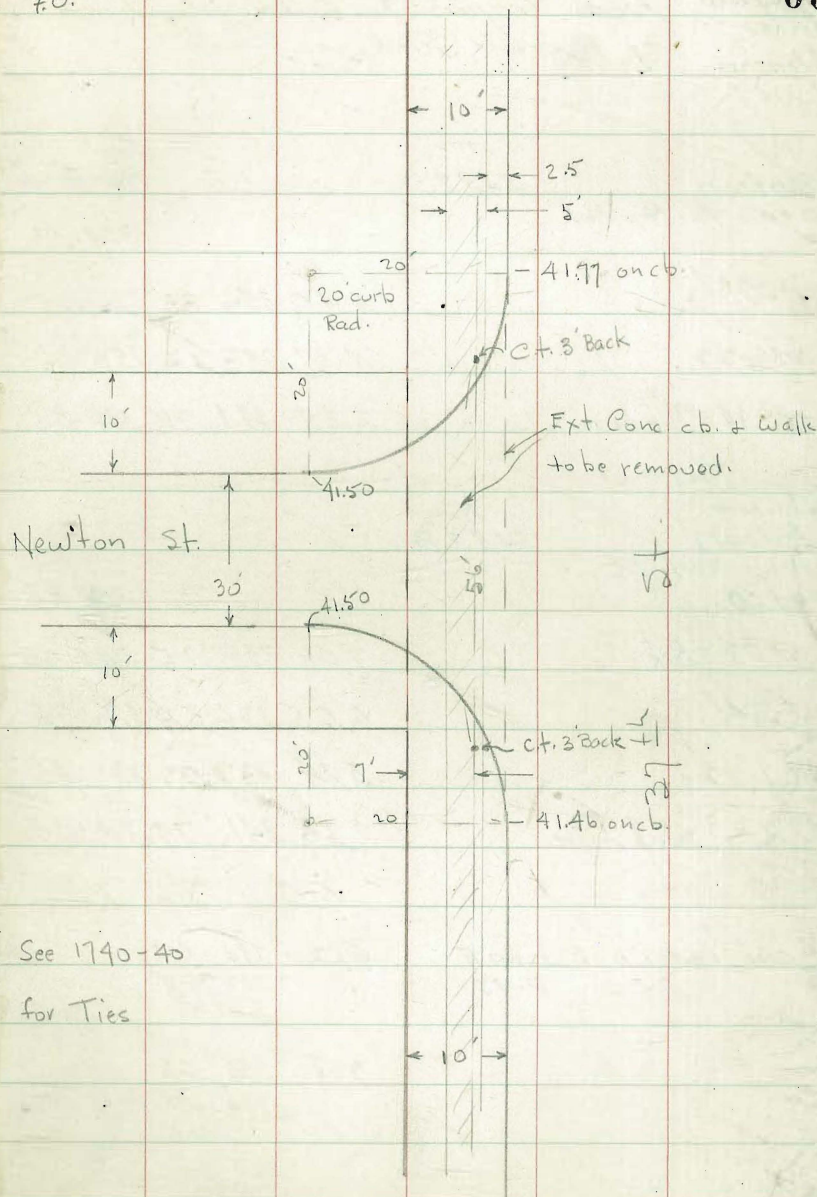 10'
2.5
5'
20'
41.77 on cb.
20' curb
Rad.
C.t. 3' Back
20'
10'
Ext Conc. cb. & walk
to be removed.
41.50
Newton St.
56'
St.
30'
41.50
10'
C.t. 3' Back
37th
20'
7'
20
41.46 on cb.
See 1740-40
for Ties
10'